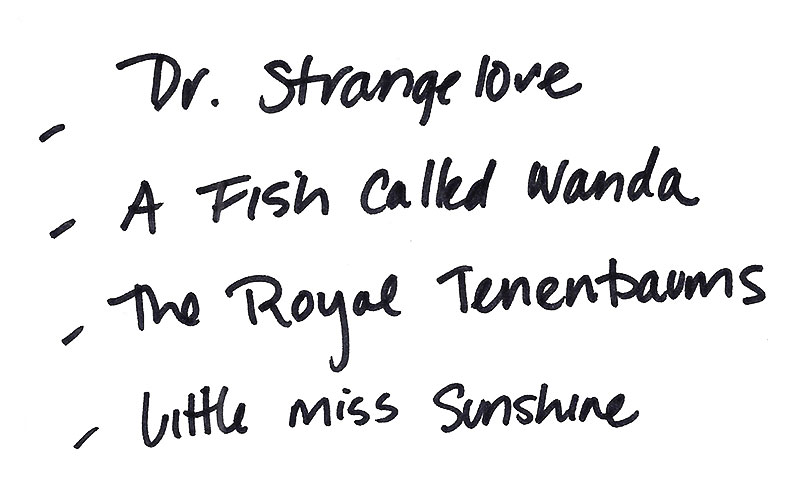 - Dr. Strangelove
- A Fish Called Wanda
- The Royal Tenenbaums
- Little Miss Sunshine